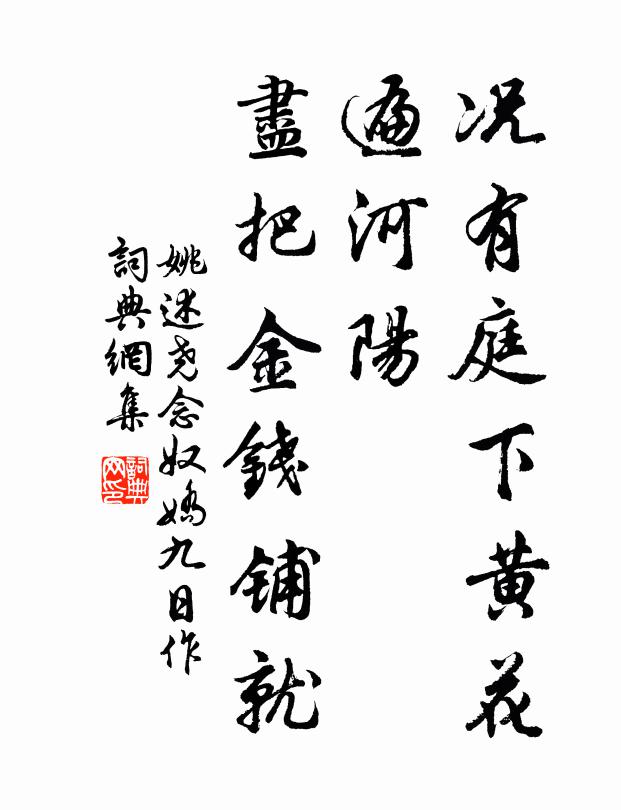 况有庭下黄花
遍河陽
盡把金錢鋪就
姚述尧念奴嬌九日作
詞典網集
詞典网印